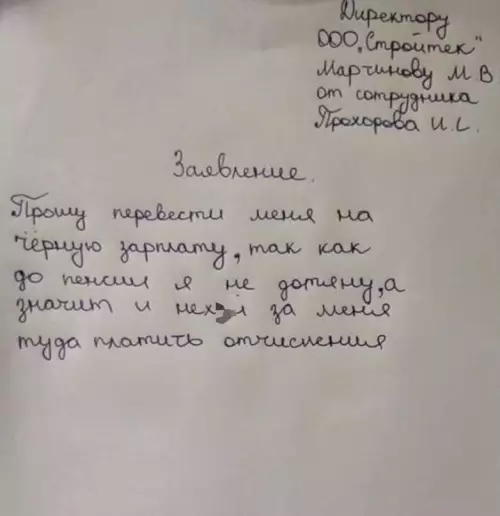 Директору
ООО „Стройтек"
Марчинову М. В
от сотрудника
Прохорова И. С.
Заявление.
Прошу перевести меня на
чёрную зарплату, так как
до пенсии я не дотяну, а
значит и нех й за меня
туда платить отчисления